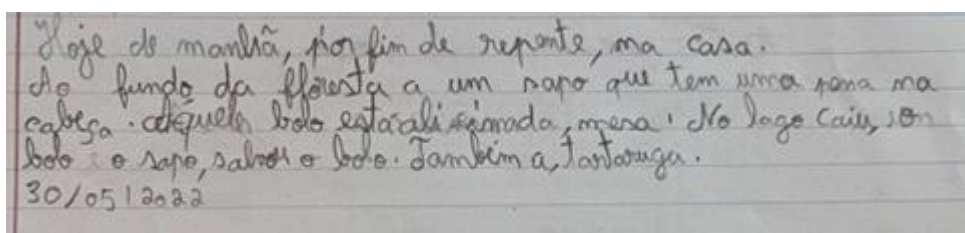 Hoje de manhã, por fim de repente, na casa.
Ao fundo da floresta a um sapo que tem uma pena na
cabeça. Aquele bolo esta ali mesa. No lago caiu,
bolo o sapo, salvou o bolo. Também a, tartaruga.
30/05/2022